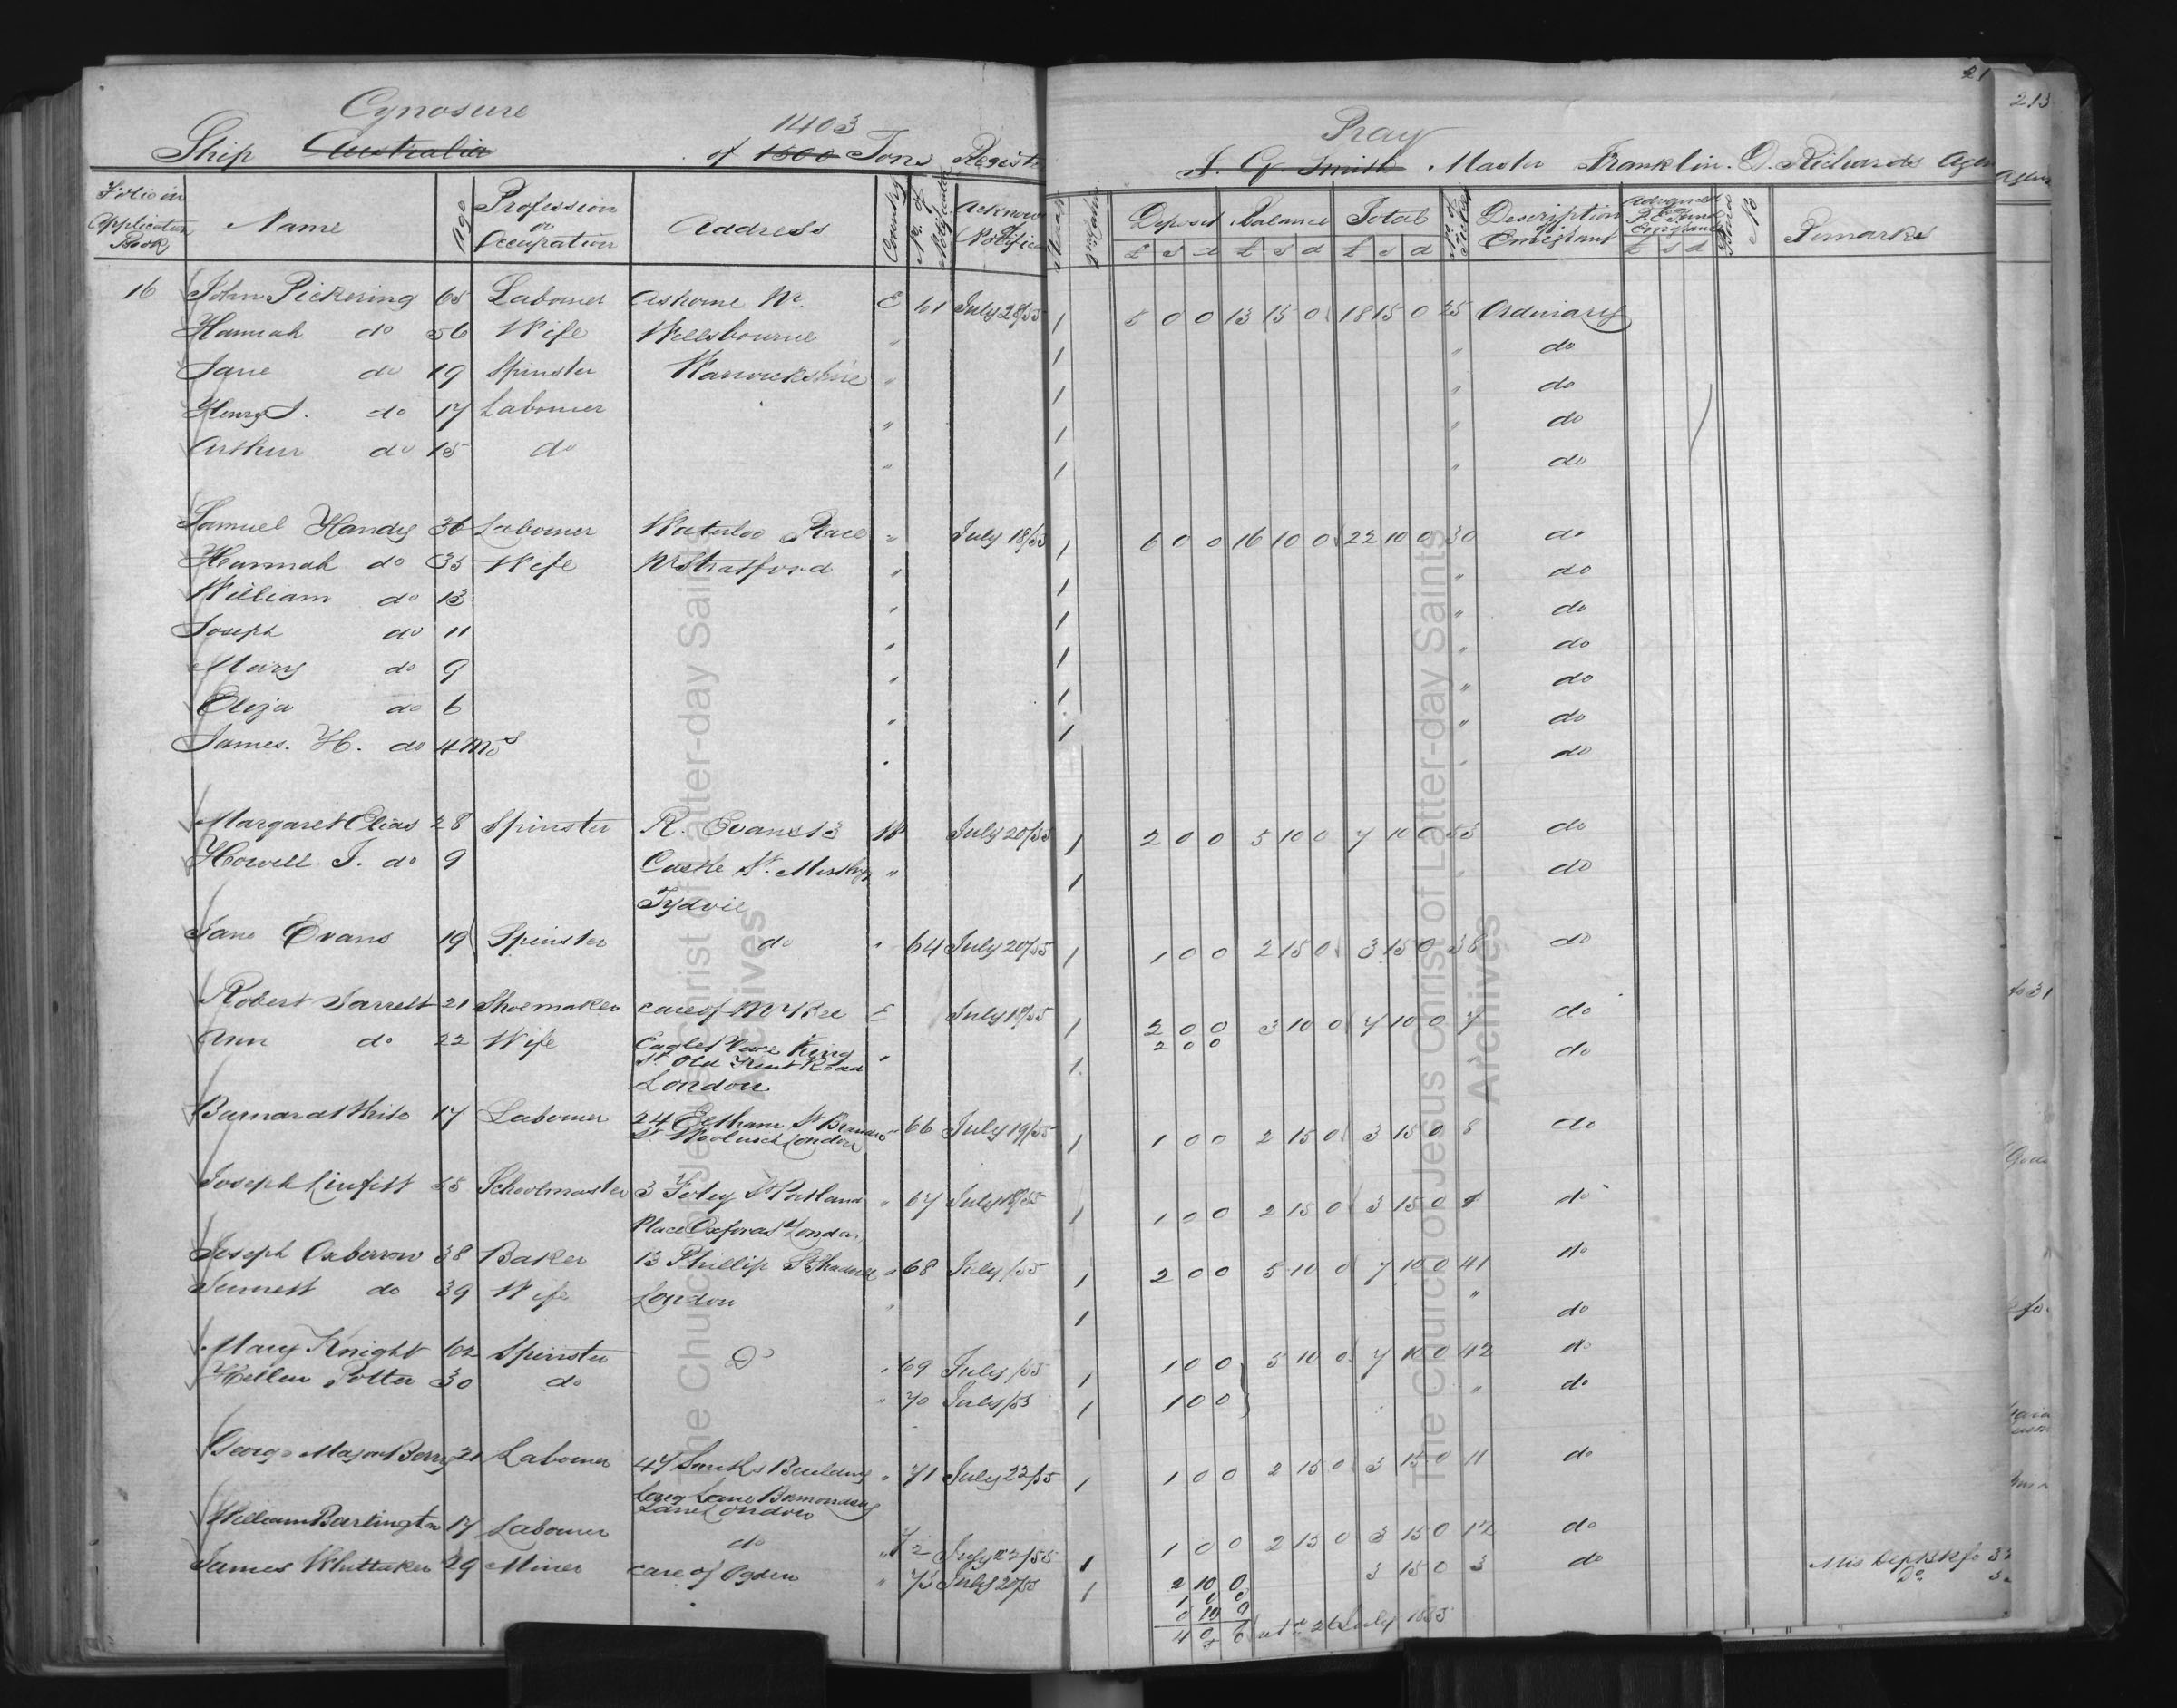 21
213
Cynosure
1403
Pray
Ship Australia of 1500 Tons Regist
J. G. Smith Master Franklin. D. Richards Agen
Folio in Application Book Name Age Profession or Occupation Address Country No. of Notification Acknow Notific
Deposit Balance Total No. of Ticket Description of Emigrant Advanced by P. E. Fund Emigrants NB Remarks
£ s d £ s d £ s d £ s d
16 John Pickering 65 Labourer Ashorne Nr. E 61 July 28/55 1 5 0 0 13 15 0 18 15 0 25 Ordinary
Hannah do 56 Wife Wellsbourne " 1 " do
Jane do 19 Spinster Warwickshire " 1 " do
Henry J. do 17 Labourer " 1 " do
Arthur do 15 do " 1 " do
Samuel Handy 36 Labourer Waterloo Place " July 18/55 1 6 0 0 16 10 0 22 10 0 30 do
Hannah do 35 Wife Nr Stratford " 1 " do
William do 13 " 1 " do
Joseph do 11 " 1 " do
Mary do 9 " 1 " do
Eliza do 6 " 1 " do
James. H. do 4 Mos " do
Margaret Elias 28 Spinster R. Evans 13 W July 20/55 1 2 0 0 5 10 0 7 10 0 53 do
Howell J. do 9 Castle St. Merthyr " 1 do
Tydvil
Jane Evans 19 Spinster do " 64 July 20/55 1 1 0 0 2 15 0 3 15 0 38 do
Robert Jarrett 21 Shoemaker care of Mr Bee E July 19/55 1 2 0 0 3 10 0 7 10 0 7 do
2 0 0
Ann do 22 Wife Eagle Place King " 1 do
St. Old Kent Road
London
Barnard White 17 Labourer 24 Eltham St Brewer " 66 July 19/55 1 1 0 0 2 15 0 3 15 0 8 do
St Woolwich London
Joseph Linfitt Schoolmaster 3 Foley St Portland " 67 July 18/55 1 1 0 0 2 15 0 3 15 0 do
Place Oxford St London
Joseph Oxberrow 38 Baker 13 Phillip St Shadwell " 68 July /55 1 2 0 0 5 10 0 7 10 0 41 do
do 39 Wife London " 1 " do
Mary Knight 62 Spinster Do " 69 July /55 1 1 0 0 5 10 0 7 10 0 42 do
Hellen Potter 30 do " 70 July /55 1 1 0 0 " do
George Major Berry 21 Labourer 47 Buildings " 71 July 22/55 1 1 0 0 2 15 0 3 15 0 11 do
Long Lane Bermondsey
Lane London
William Bartington 17 Labourer do " 72 July 22/55 1 1 0 0 2 15 0 3 15 0 12 do
James Whittaker 29 Miner care of Ogden " 73 July 20/55 1 2 10 0 3 15 0 3 do
1 0 0
0 10 0
4 0 0 26 July 1855
The Church of Jesus Christ of Latter-day Saints
Archives
The Church of Jesus Christ of Latter-day Saints
Archives